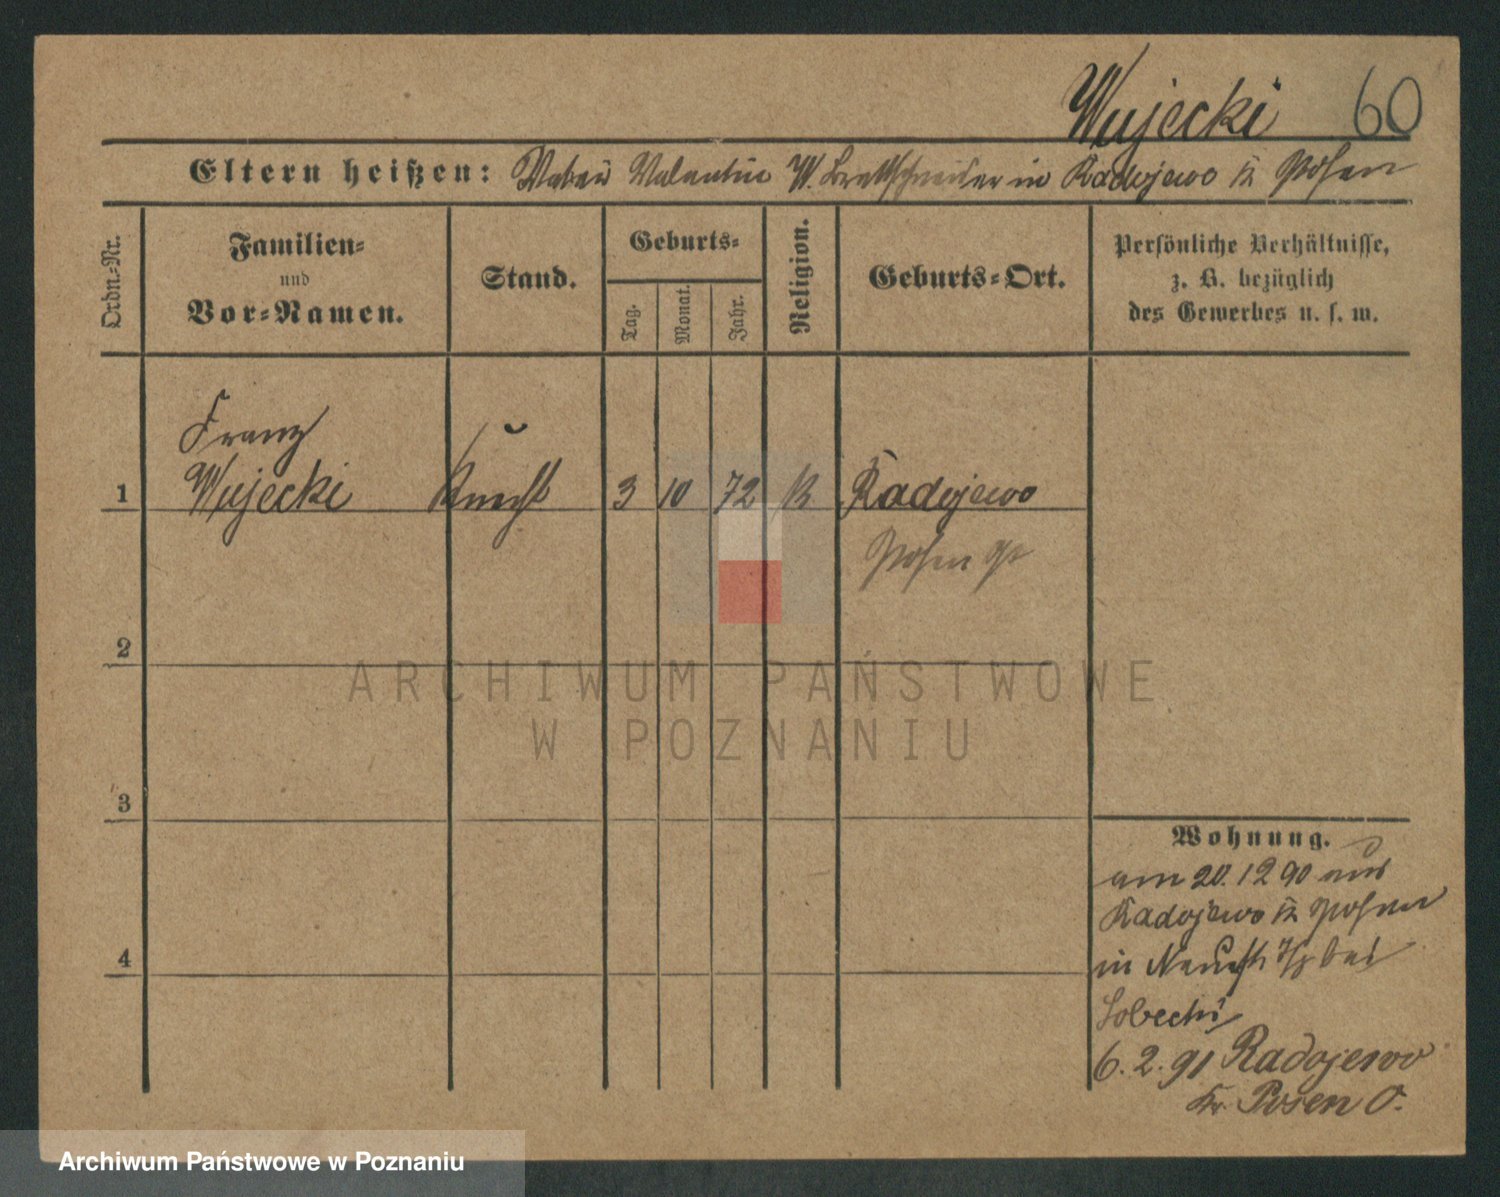 Wujecki 60
Eltern heißen: Valentin W. Brettschneider in Radojewo K Posen
Ordn.-Nr.
Familien-
und
Vor-Namen.
Stand.
Geburts-
Tag.
Monat.
Jahr.
Religion.
Geburts-Ort.
Persönliche Verhältnisse,
z. B. bezüglich
des Gewerbes u. s. w.
Franz
1 Wujecki Knecht 3 10 72 K Radojewo
Posen
2
3
4
Wohnung.
am 20.12 90 aus
Radojewo K Posen
in bei
6.2.91 Radojewo
Kr. Posen O.
ARCHIWUM PAŃSTWOWE
W POZNANIU
Archiwum Państwowe w Poznaniu